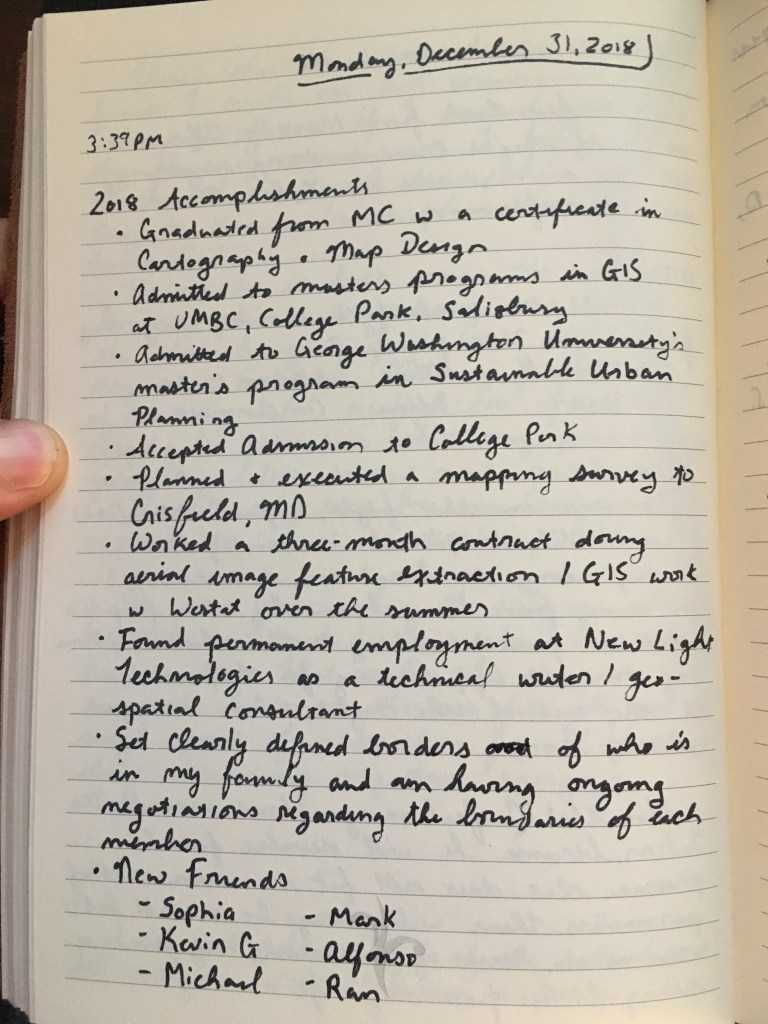 Monday, December 31, 2018
3:39PM
2018 Accomplishments
• Graduated from MC w a certificate in
Cartography & Map Design
• Admitted to masters programs in GIS
at UMBC, College Park, Salisbury
• Admitted to George Washington University's
master's program in Sustainable Urban
Planning
• Accepted Admission to College Park
• Planned + executed a mapping survey to
Crisfield, MD
• Worked a three-month contract doing
aerial image feature extraction / GIS work
w Westat over the summer
• Found permanent employment at New Light
Technologies as a technical writer / geo-
spatial consultant
• Set clearly defined borders of who is
in my family and am having ongoing
negotiations regarding the boundaries of each
member
• New Friends
- Sophia - Mark
- Kevin G - Alfonso
- Michael - Ran